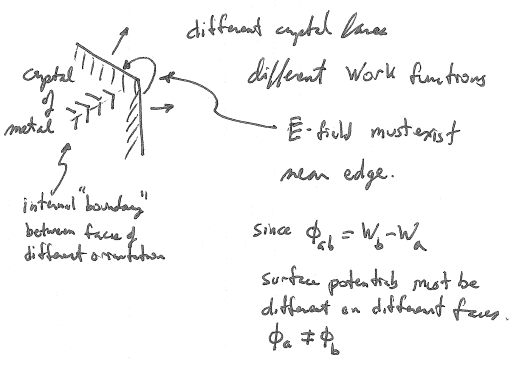 different crystal faces
different Work functions
crystal
of
metal
E-field must exist
near edge.
internal "boundary"
between faces of
different orientation
since ϕab = Wb - Wa
surface potentials must be
different on different faces.
ϕa ≠ ϕb